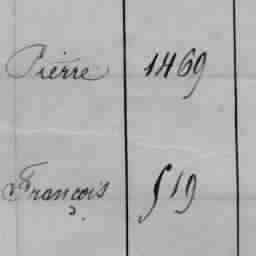 Pierre 1469
François 519